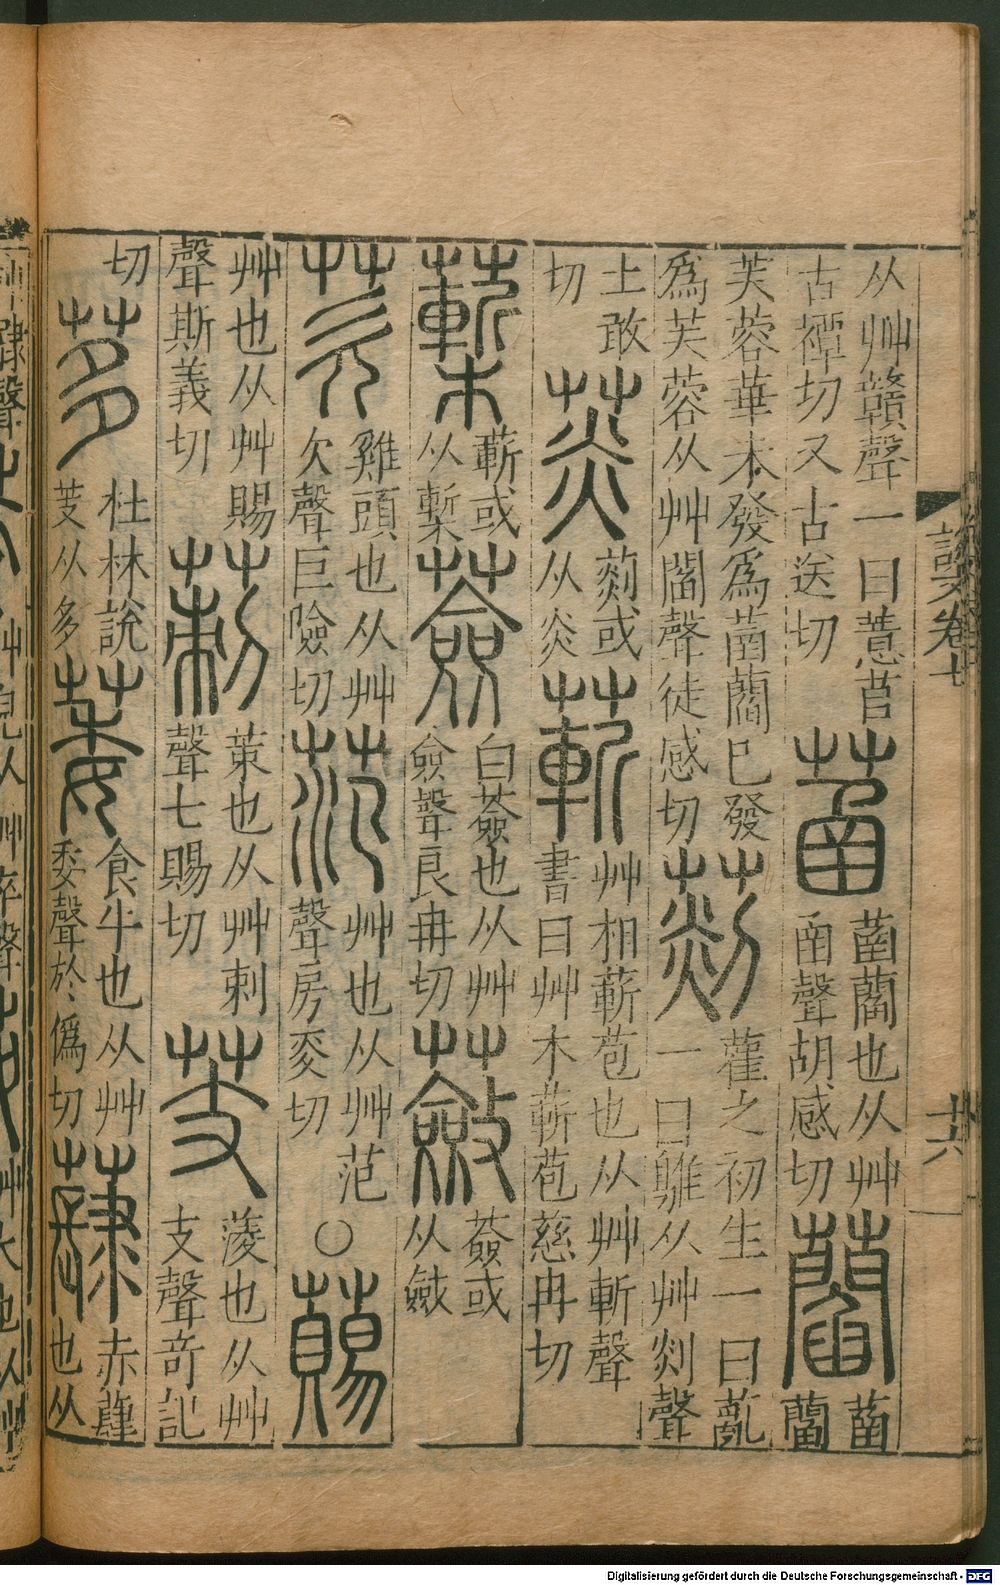 从艸贛聲一曰薏苢
古禫切又古送切
萏
菡藺也从艸
圅聲胡感切
藺
菡
藺
芙蓉華未發爲菡藺已發
爲芙蓉从艸閻聲徒感切
菼
雚之初生一曰薍
一曰鵻从艸剡聲
土敢
切
菼
菼或
从炎
蔪
艸相蔪苞也从艸斬聲
書曰艸木蔪苞慈冉切
蔪
蔪或
从槧
薟
白薟也从艸
僉聲良冉切
蘞
薟或
从斂
芡
雞頭也从艸
欠聲巨險切
范
艸也从艸
聲房㚆切
○
薚
艸也从艸賜
聲斯義切
莿
茦也从艸刺
聲七賜切
芰
蔆也从艸
支聲奇記
切
茤
杜林說
芰从多
萎
食牛也从艸
委聲於僞切
赤
也从
說文卷七
十六
Digitalisierung gefördert durch die Deutsche Forschungsgemeinschaft - DFG